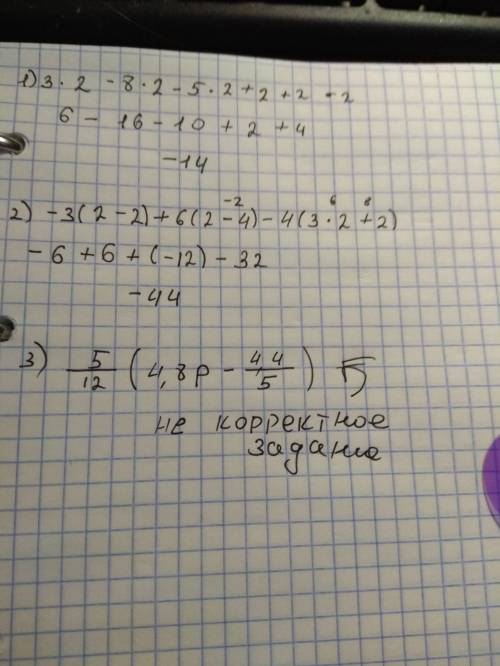 1) 3 · 2 - 8 · 2 - 5 · 2 + 2 + 2 · 2
6 - 16 - 10 + 2 + 4
-14
2) -3(2-2) + 6(2-4) - 4(3·2+2)
-2 6 8
-6 + 6 + (-12) - 32
-44
3) 5/12 (4,8p - 4,4/5)
не корректное
задание